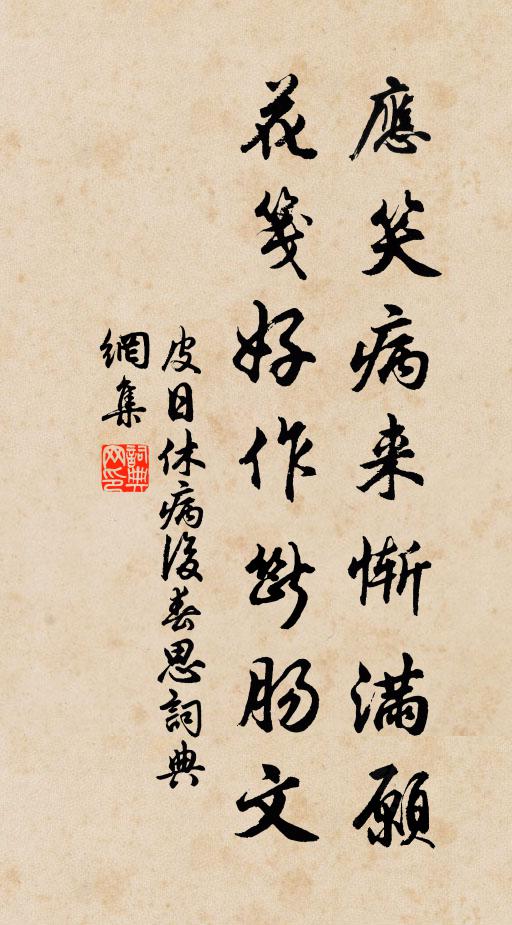 應笑病来慚滿願
花箋好作斷腸文
皮日休病後春思詞典
網集
詞典网印